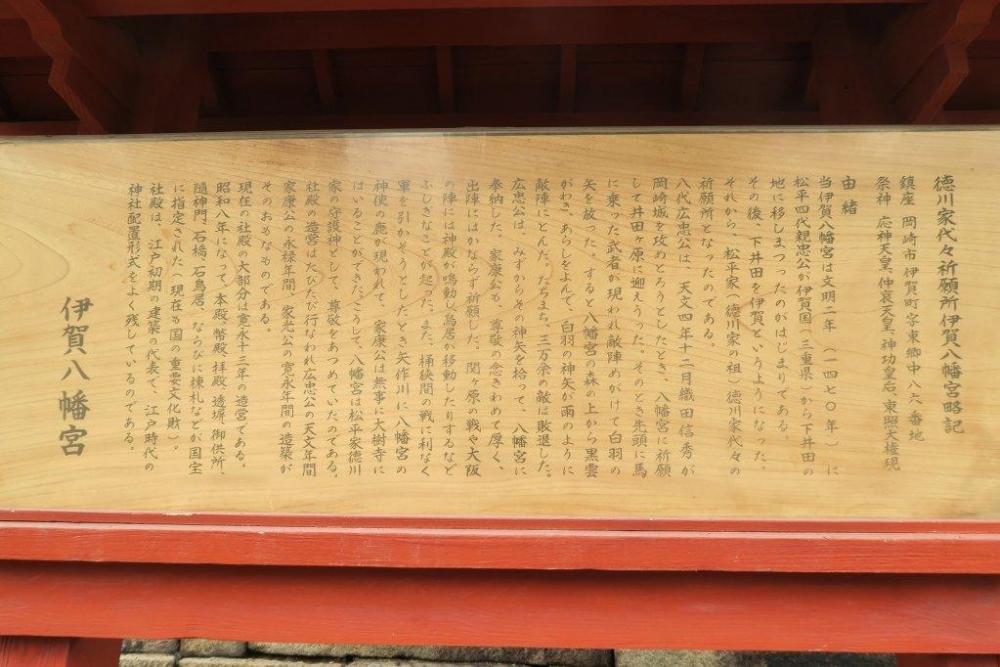 徳川家代々祈願所伊賀八幡宮略記
鎮座 岡崎市伊賀町字東郷中八六番地
祭神 応神天皇、仲哀天皇、神功皇后、東照大権現
由緒
当伊賀八幡宮は文明二年(一四七〇年)に
松平四代親忠公が伊賀国(三重県)から下井田の
地に移しまつったのがはじまりである
その後、下井田を伊賀というようになった。
それから、松平家(徳川家の祖)徳川家代々の
祈願所となったのである。
八代広忠公は、天文四年十二月織田信秀が
岡崎城を攻めとろうとしたとき、八幡宮に祈願
して井田ヶ原に迎えうった。そのとき先頭に馬
に乗った武者が現われ敵陣めがけて白羽の
矢を放った。すると八幡宮の森の上から黒雲
がわき、あらしをよんで、白羽の神矢が雨のように
敵陣にとんだ。たちまち、三万余の敵は敗退した。
広忠公は、みずからその神矢を拾って、八幡宮に
奉納した。家康公も、尊敬の念きわめて厚く、
出陣にはかならず祈願した。関ヶ原の戦や大阪
の陣には神殿が鳴動し鳥居が移動したりするなど
ふしぎなことが起った。また、桶狭間の戦に利なく
軍を引かそうとしたとき矢作川に八幡宮の
神使の鹿が現われて、家康公は無事に大樹寺に
はいることができた。こうして、八幡宮は松平家徳川
家の守護神として、尊敬をあつめていたのである。
社殿の造営はたびたび行なわれ広忠公の天文年間
家康公の永禄年間、家光公の寛永年間の造築が
そのおもなものである。
現在の社殿の大部分は寛永十三年の造営である。
昭和八年になって、本殿、幣殿、拝殿、透塀、御供所、
随神門、石橋、石鳥居、ならびに棟札などが国宝
に指定された(現在も国の重要文化財)。
社殿は、江戸初期の建築の代表で、江戸時代の
神社配置形式をよく残しているのである。
伊賀八幡宮